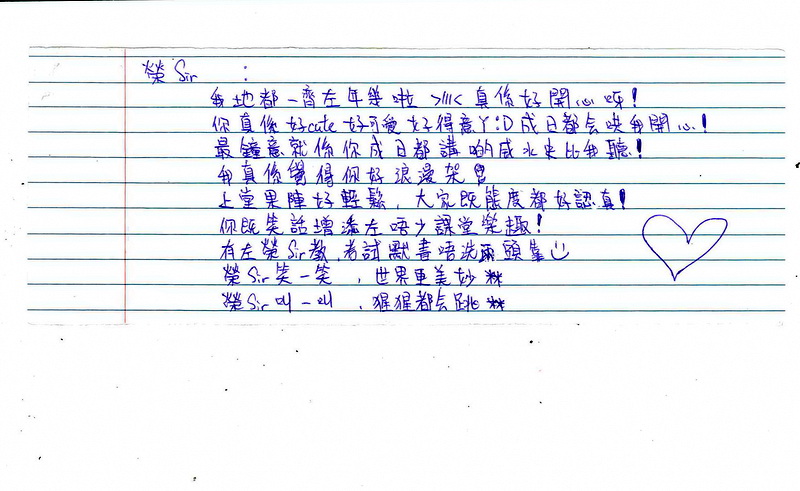 榮 Sir :
我地都一齊左年幾啦 >///< 真係好開心呀!
你真係好cute 好可愛 好得意Y:D 成日都会哄我開心!
最鐘意就係你成日都講啲威水史比我聽!
我真係覺得你好浪漫架
上堂果陣好輕鬆, 大家既態度都好認真!
你既笑話增添左唔少課堂樂趣!
有左榮Sir教, 考試默書唔洗兩頭靠
榮Sir笑一笑 , 世界更美妙**
榮Sir叫一叫 , 猩猩都会跳**